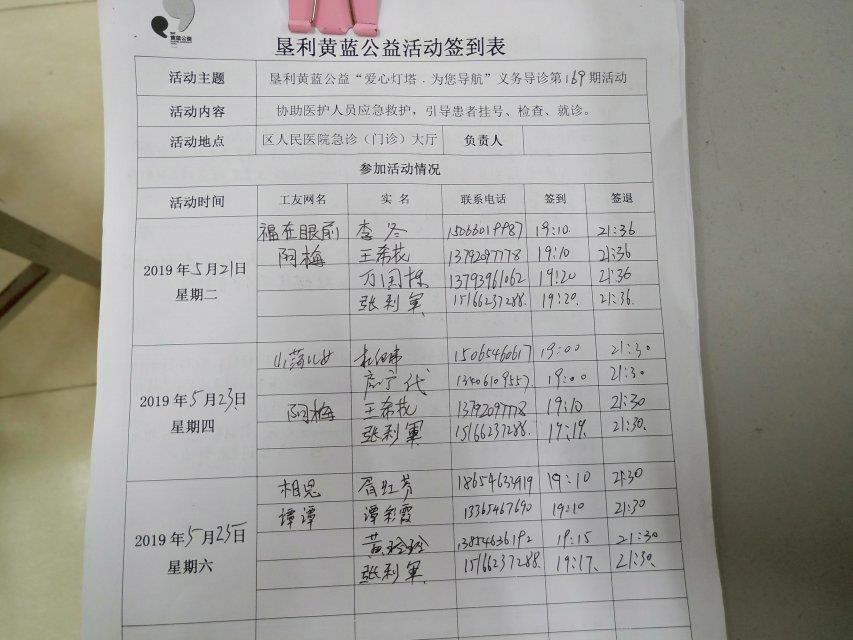 黄蓝公益
垦利黄蓝公益活动签到表
活动主题 垦利黄蓝公益“爱心灯塔．为您导航”义务导诊第169期活动
活动内容 协助医护人员应急救护，引导患者挂号、检查、就诊。
活动地点 区人民医院急诊（门诊）大厅 负责人
参加活动情况
活动时间 工友网名 实 名 联系电话 签到 签退
2019年5月21日 星期二
福在眼前 李冬 15066019987 19:10 21:36
阿梅 王希花 13792097778 19:10 21:36
万国栋 13793961062 19:20 21:36
张利军 15166237288. 19:20. 21:36.
2019年5月23日 星期四
15065460617 19:00 21:30
代 13406109557. 19:00 21:30
阿梅 王希花 13792097778 19:10 21:30
张利軍 15166237288. 19:19. 21:30.
2019年5月25日 星期六
相思 红芳 18654633919 19:10 21:30
谭谭 谭彩霞 13365467690 19:10 21:30
黄玲玲 13854636192 19:15 21:30
张利軍 15166237288. 19:17. 21:30.